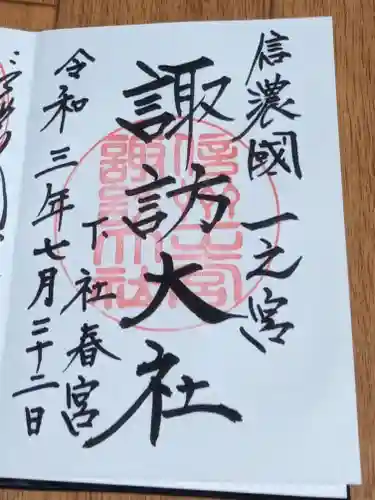 信濃國一之宮
諏訪大社
下社春宮
令和三年七月二十二日